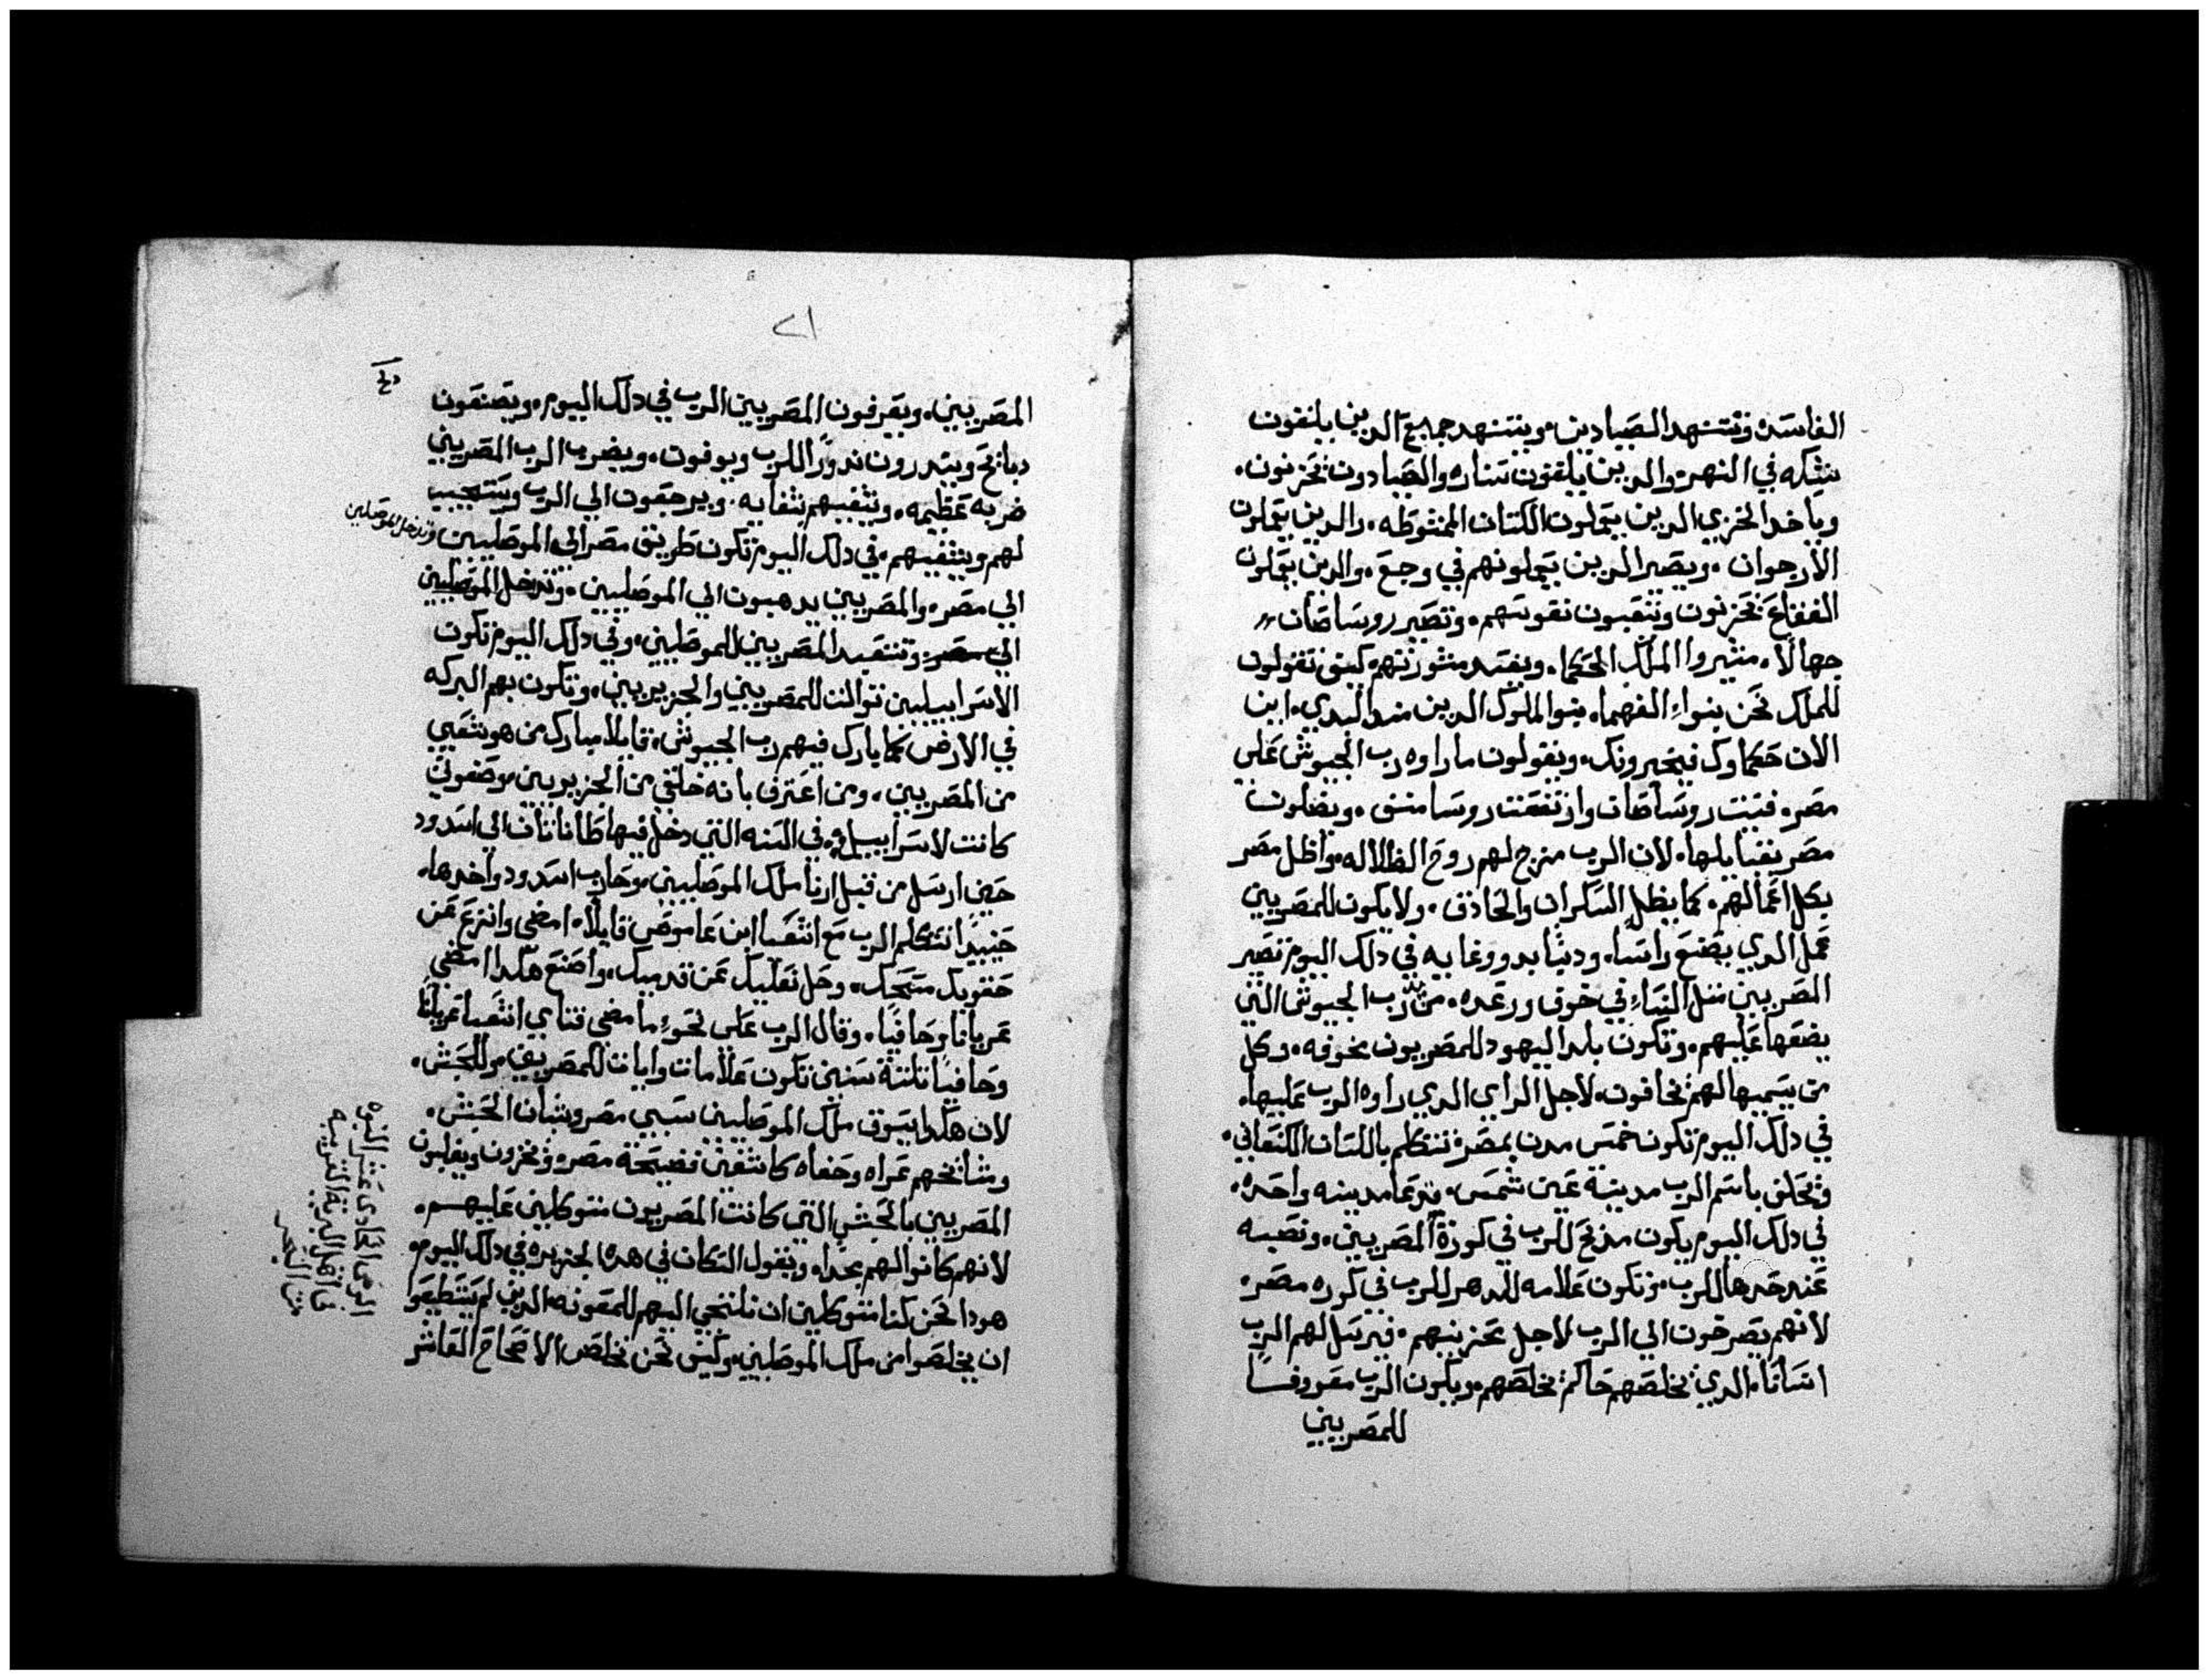 الفاسده وتتنهد الصيادين، ويتنهد جميع الدين يلقون
شبكه في النهر، والدين يلقون سناره والصيادون تحزنون،
وياخد الخزي الدين يعملون الكتان الممشوطه، والدين يعملون
الارجوان، ويصير الدين يعملونهم في وجع، والدين يعملون
الفقاع تحزنون وتتعبون نفوسهم، وتصير روسا صان
جهالًا، مشيروا الملك الحكما، ويفسد مشورتهم كيف تقولون
للملك نحن بنواء الفهما، بنوا الملوك الدين مند البدي، اين
الان حكماوك فيخبرونك، ويقولون ما راوه رب الجيوش علي
مصر، فنيت روسا صان وارتفعت روسا منف، ويضلون
مصر بقبايلها، لان الرب مزج لهم روح الظلاله، واظل مصر
بكل اعمالهم، كما يظل السكران والحادق، ولا يكون للمصريين
عمل الدي يصنع راسًا، ودنبا بدو وغايه في دلك اليوم تصير
المصريين مثل النساء في خوف ورعده، من يد رب الجيوش التي
يضعها عليهم، وتكون بلد اليهود للمصريون مخوفه، وكل
من يسميها لهم تخافون، لاجل الراي الدي راوه الرب عليها،
في دلك اليوم تكون خمس مدن بمصر، تتكلم باللسان الكنعاني،
وتحلف باسم الرب مدينة عين شمس، تدعا مدينه واحده،
في دلك اليوم يكون مدبح للرب في كورة المصريين، ونصبه
عند حدها للرب، وتكون علامه للدهر للرب في كوره مصر،
لانهم يصرخون الي الرب لاجل محزنيهم، فيرسل لهم الرب
انسانًا، الدي يخلصهم حاكم يخلصهم، ويكون الرب معروفًا
للمصريين
٢١
المصريين، ويعرفون المصريين الرب في دلك اليوم، ويصنعون
دبايح ويندرون ندورًا للرب ويوفون، ويضرب الرب المصريين
ضربه عظيمه، وتشفيهم بشفايه، ويرجعون الي الرب ويستجيب
لهم ويشفيهم، في دلك اليوم تكون طريق مصر الي الموصليين وتدخل الموصليين
الي مصر، والمصريين يدهبون الي الموصليين، وتدخل الموصليين
الي مصر، وتتعبد المصريين للموصليين، وفي دلك اليوم تكون
الاسراييليين توالت للمصريين والجزيريين، وتكون بهم البركه
في الارض كما بارك فيهم رب الجيوش، قايلا مبارك من هو شعبي
من المصريين، ومن اعترف بانه خلقي من الجزيريين موضعون
كانت لاسراييل، في السنه التي دخل فيها طاناتان الي اسدود
حين ارسل من قبل ارنا ملك الموصليين، وحارب اسدود واخدها،
حينيدًا تتكلم الرب مع اشعيا ابن عاموص قايلًا، امضي وانزع عن
حقويك مسحك، وحل نعليك عن قدميك، واصنع هكدا امضي
عريانا وحافيًا، وقال الرب علي نحوء ما مضي فتاي اشعيا عريانًا
وحافيًا تلتة سنين تكون علامات وايات للمصريين وللحبش،
لان هكدا يسوق ملك الموصليين سبي مصر وشبان الحبش،
وشايخهم عراه وحفاه كاشفين فضيحة مصر، وتخزون ويغلبون
المصريين بالحبش التي كانت المصريون متوكلين عليهم،
لانهم كانوا لهم مجدًا، ويقول السكان في هده الجزيره في دلك اليوم،
هودا نحن كنا متوكلين ان نلتجي اليهم للمعونه الدين لم يستطيعوا
ان يخلصوا من ملك الموصليين، وكيف نحن نخلص الاصحاح العاشر